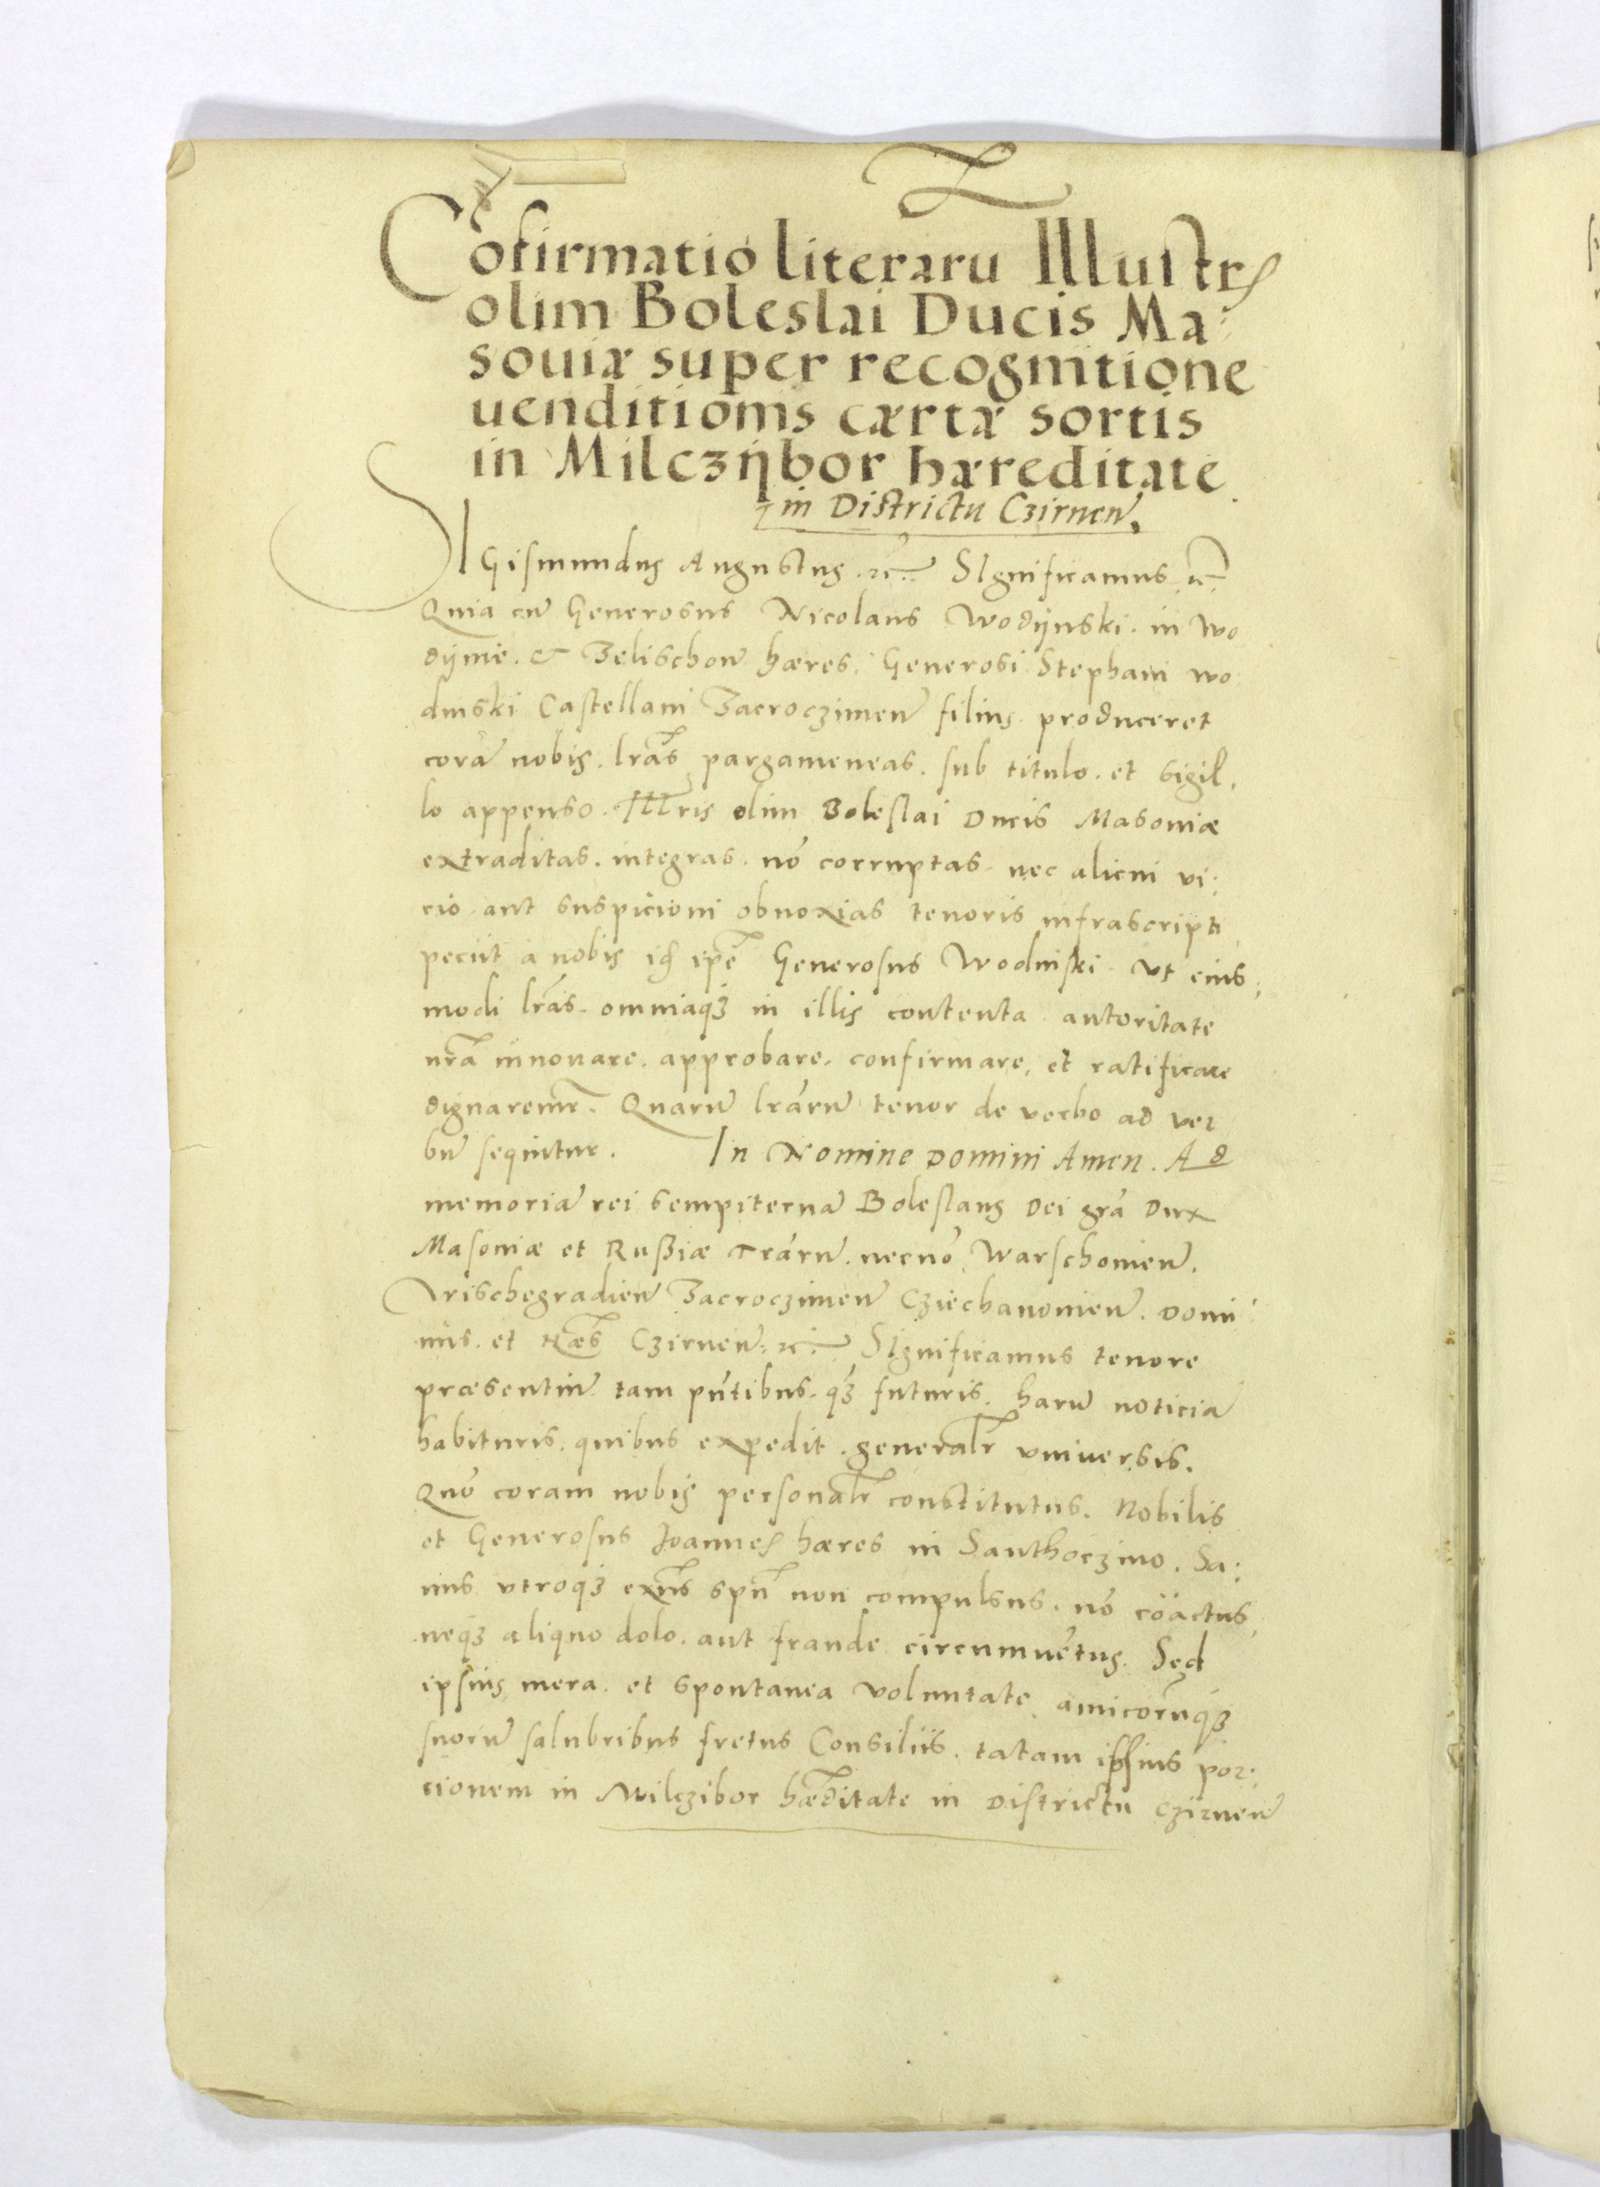 Cõfirmatiõ literarũ Illustris
olim Boleslai Ducis Ma:
souiæ super recognitione
uenditionis cærtæ sortis
in Milczÿbor hæreditate
in Districtu Czirneñ.
SIGismundus Augustus. etc. SIgnificamus. etc.
Quia cũ Generosus Nicolaus Wodÿnski. in Wo
dÿnie. et Zelischow hæres. Generosi Stephani Wo
dinski Castellani Zacroczimeñ filius produceret
corã nobis. lr̃as pargameneas. sub titulo. et sigil.
lo appenso. Illr̃is olim Boleslai Ducis Masouiæ
extraditas. integras. nõ corruptas. nec alicui vi:
cio. aut suspicioni obnoxias tenoris infrascripti
peciit a nobis idẽ ip̃e Generosus Wodinski. Vt eius:
modi lr̃as. omniaqꝫ in illis contenta autoritate
nr̃a innouare. approbare. confirmare, et ratificare
dignaremur. Quarũ lr̃arũ tenor de verbo ad ver
bũ sequitur. In Nomine Domini Amen. Ad
memoriã rei sempiternã Boleslaus Dei gr̃a Dux
Masouiæ et Rußiæ Tr̃arũ. necnõ Warschouieñ.
Vischegradieñ Zacroczimeñ Cziechanouieñ. Domi
nus. et hæs Czirneñ: etc. SIgnificamus tenore
præsentiũ tam pñtibus. qꝫ futuris. harũ noticiã
habituris. quibus expedit. generalr̃ vniuersis.
Quõ coram nobis personalr̃ constitutus. Nobilis
et Generosus Joannes hæres in Santhoczino. Sa:
nus vtroqꝫ exñs spũ non compulsus. nõ cõactus
neqꝫ aliquo dolo. aut fraude circumuẽtus. Sed
ipsius mera. et spontanea voluntate amicorũqꝫ
suorũ salubribus fretus Consiliis. tatam ipsius por:
cionem in Milczibor hæditate in Districtu Czirneñ